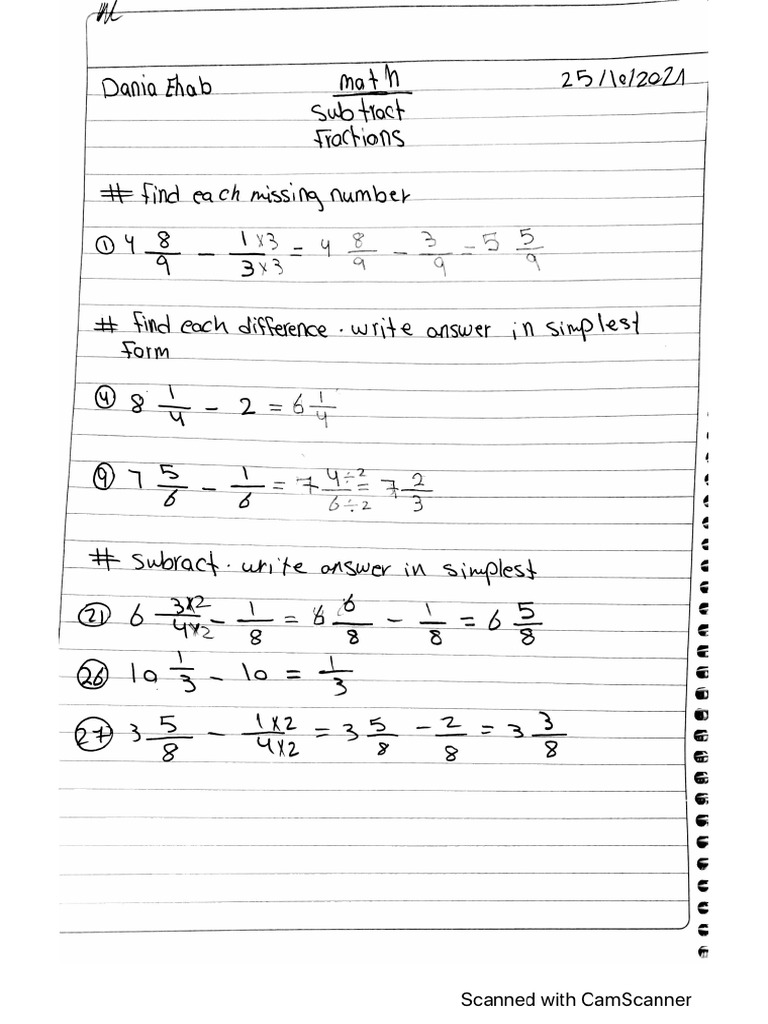 Dania Ehab math 25/10/2021
subtract
fractions
# find each missing number
① 4 8/9 - 1×3/3×3 = 4 8/9 - 3/9 = 5 5/9
# find each difference. write answer in simplest
form
④ 8 1/4 - 2 = 6 1/4
⑨ 7 5/6 - 1/6 = 7 4÷2/6÷2 = 7 2/3
# subract. write answer in simplest
㉑ 6 3×2/4×2 - 1/8 = 6 6/8 - 1/8 = 6 5/8
㉖ 10 1/3 - 10 = 1/3
㉗ 3 5/8 - 1×2/4×2 = 3 5/8 - 2/8 = 3 3/8
Scanned with CamScanner